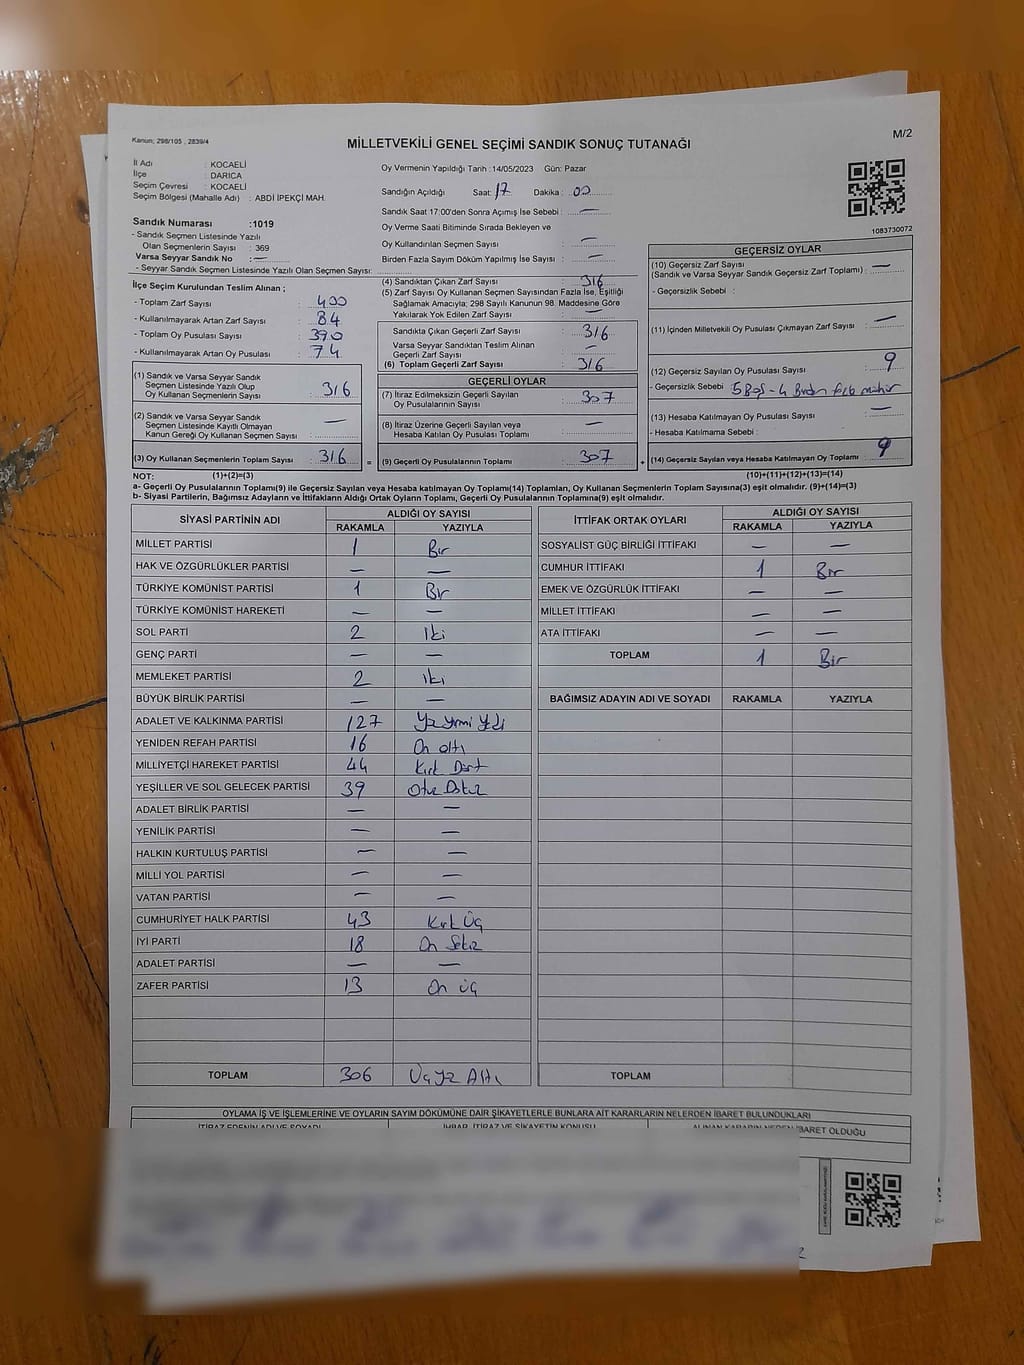 Kanun; 298/105 , 2839/4
MİLLETVEKİLİ GENEL SEÇİMİ SANDIK SONUÇ TUTANAĞI
M/2
İl Adı : KOCAELİ
İlçe : DARICA
Seçim Çevresi : KOCAELİ
Seçim Bölgesi (Mahalle Adı) : ABDİ İPEKÇİ MAH.
Oy Vermenin Yapıldığı Tarih :14/05/2023 Gün: Pazar
Sandığın Açıldığı Saat: 17 Dakika : 00
Sandık Saat 17:00'den Sonra Açımış İse Sebebi : —
Oy Verme Saati Bitiminde Sırada Bekleyen ve
Oy Kullandırılan Seçmen Sayısı : —
Birden Fazla Sayım Döküm Yapılmış İse Sayısı : —
Sandık Numarası :1019
- Sandık Seçmen Listesinde Yazılı
Olan Seçmenlerin Sayısı : 369
Varsa Seyyar Sandık No : —
- Seyyar Sandık Seçmen Listesinde Yazılı Olan Seçmen Sayısı:
1083730072
İlçe Seçim Kurulundan Teslim Alınan ;
- Toplam Zarf Sayısı : 400
- Kullanılmayarak Artan Zarf Sayısı : 84
- Toplam Oy Pusulası Sayısı : 390
- Kullanılmayarak Artan Oy Pusulası : 74
(1) Sandık ve Varsa Seyyar Sandık
Seçmen Listesinde Yazılı Olup
Oy Kullanan Seçmenlerin Sayısı : 316
(2) Sandık ve Varsa Seyyar Sandık
Seçmen Listesinde Kayıtlı Olmayan
Kanun Gereği Oy Kullanan Seçmen Sayısı : —
(3) Oy Kullanan Seçmenlerin Toplam Sayısı : 316
(4) Sandıktan Çıkan Zarf Sayısı : 316
(5) Zarf Sayısı Oy Kullanan Seçmen Sayısından Fazla İse, Eşitliği
Sağlamak Amacıyla; 298 Sayılı Kanunun 98. Maddesine Göre
Yakılarak Yok Edilen Zarf Sayısı : —
Sandıkta Çıkan Geçerli Zarf Sayısı : 316
Varsa Seyyar Sandıktan Teslim Alınan
Geçerli Zarf Sayısı : —
(6) Toplam Geçerli Zarf Sayısı : 316
GEÇERLİ OYLAR
(7) İtiraz Edilmeksizin Geçerli Sayılan
Oy Pusulalarının Sayısı : 307
(8) İtiraz Üzerine Geçerli Sayılan veya
Hesaba Katılan Oy Pusulası Toplamı : —
= (9) Geçerli Oy Pusulalarının Toplamı : 307 +
GEÇERSİZ OYLAR
(10) Geçersiz Zarf Sayısı : —
(Sandık ve Varsa Seyyar Sandık Geçersiz Zarf Toplamı)
- Geçersizlik Sebebi :
(11) İçinden Milletvekili Oy Pusulası Çıkmayan Zarf Sayısı : —
(12) Geçersiz Sayılan Oy Pusulası Sayısı : 9
- Geçersizlik Sebebi : 5 Boş - 4 Birden fazla mühür
(13) Hesaba Katılmayan Oy Pusulası Sayısı : —
- Hesaba Katılmama Sebebi :
(14) Geçersiz Sayılan veya Hesaba Katılmayan Oy Toplamı : 9
NOT: (1)+(2)=(3) (10)+(11)+(12)+(13)=(14)
a- Geçerli Oy Pusulalarının Toplamı(9) ile Geçersiz Sayılan veya Hesaba katılmayan Oy Toplamı(14) Toplamları, Oy Kullanan Seçmenlerin Toplam Sayısına(3) eşit olmalıdır. (9)+(14)=(3)
b- Siyasi Partilerin, Bağımsız Adayların ve İttifakların Aldığı Ortak Oyların Toplamı, Geçerli Oy Pusulalarının Toplamına(9) eşit olmalıdır.
SİYASİ PARTİNİN ADI ALDIĞI OY SAYISI
RAKAMLA YAZIYLA
MİLLET PARTİSİ 1 Bir
HAK VE ÖZGÜRLÜKLER PARTİSİ — —
TÜRKİYE KOMÜNİST PARTİSİ 1 Bir
TÜRKİYE KOMÜNİST HAREKETİ — —
SOL PARTİ 2 İki
GENÇ PARTİ — —
MEMLEKET PARTİSİ 2 iki
BÜYÜK BİRLİK PARTİSİ — —
ADALET VE KALKINMA PARTİSİ 127 Yüz yirmi yedi
YENİDEN REFAH PARTİSİ 16 On altı
MİLLİYETÇİ HAREKET PARTİSİ 44 Kırk Dört
YEŞİLLER VE SOL GELECEK PARTİSİ 39 Otuz Dokuz
ADALET BİRLİK PARTİSİ — —
YENİLİK PARTİSİ — —
HALKIN KURTULUŞ PARTİSİ — —
MİLLİ YOL PARTİSİ — —
VATAN PARTİSİ — —
CUMHURİYET HALK PARTİSİ 43 Kırk Üç
İYİ PARTİ 18 On Sekiz
ADALET PARTİSİ — —
ZAFER PARTİSİ 13 On üç
TOPLAM 306 Üç yüz Altı
İTTİFAK ORTAK OYLARI ALDIĞI OY SAYISI
RAKAMLA YAZIYLA
SOSYALİST GÜÇ BİRLİĞİ İTTİFAKI — —
CUMHUR İTTİFAKI 1 Bir
EMEK VE ÖZGÜRLÜK İTTİFAKI — —
MİLLET İTTİFAKI — —
ATA İTTİFAKI — —
TOPLAM 1 Bir
BAĞIMSIZ ADAYIN ADI VE SOYADI RAKAMLA YAZIYLA
TOPLAM
OYLAMA İŞ VE İŞLEMLERİNE VE OYLARIN SAYIM DÖKÜMÜNE DAİR ŞİKAYETLERLE BUNLARA AİT KARARLARIN NELERDEN İBARET BULUNDUKLARI
İTİRAZ EDENİN ADI VE SOYADI İHBAR, İTİRAZ VE ŞİKAYETİN KONUSU ALINAN KARARIN NEDEN İBARET OLDUĞU